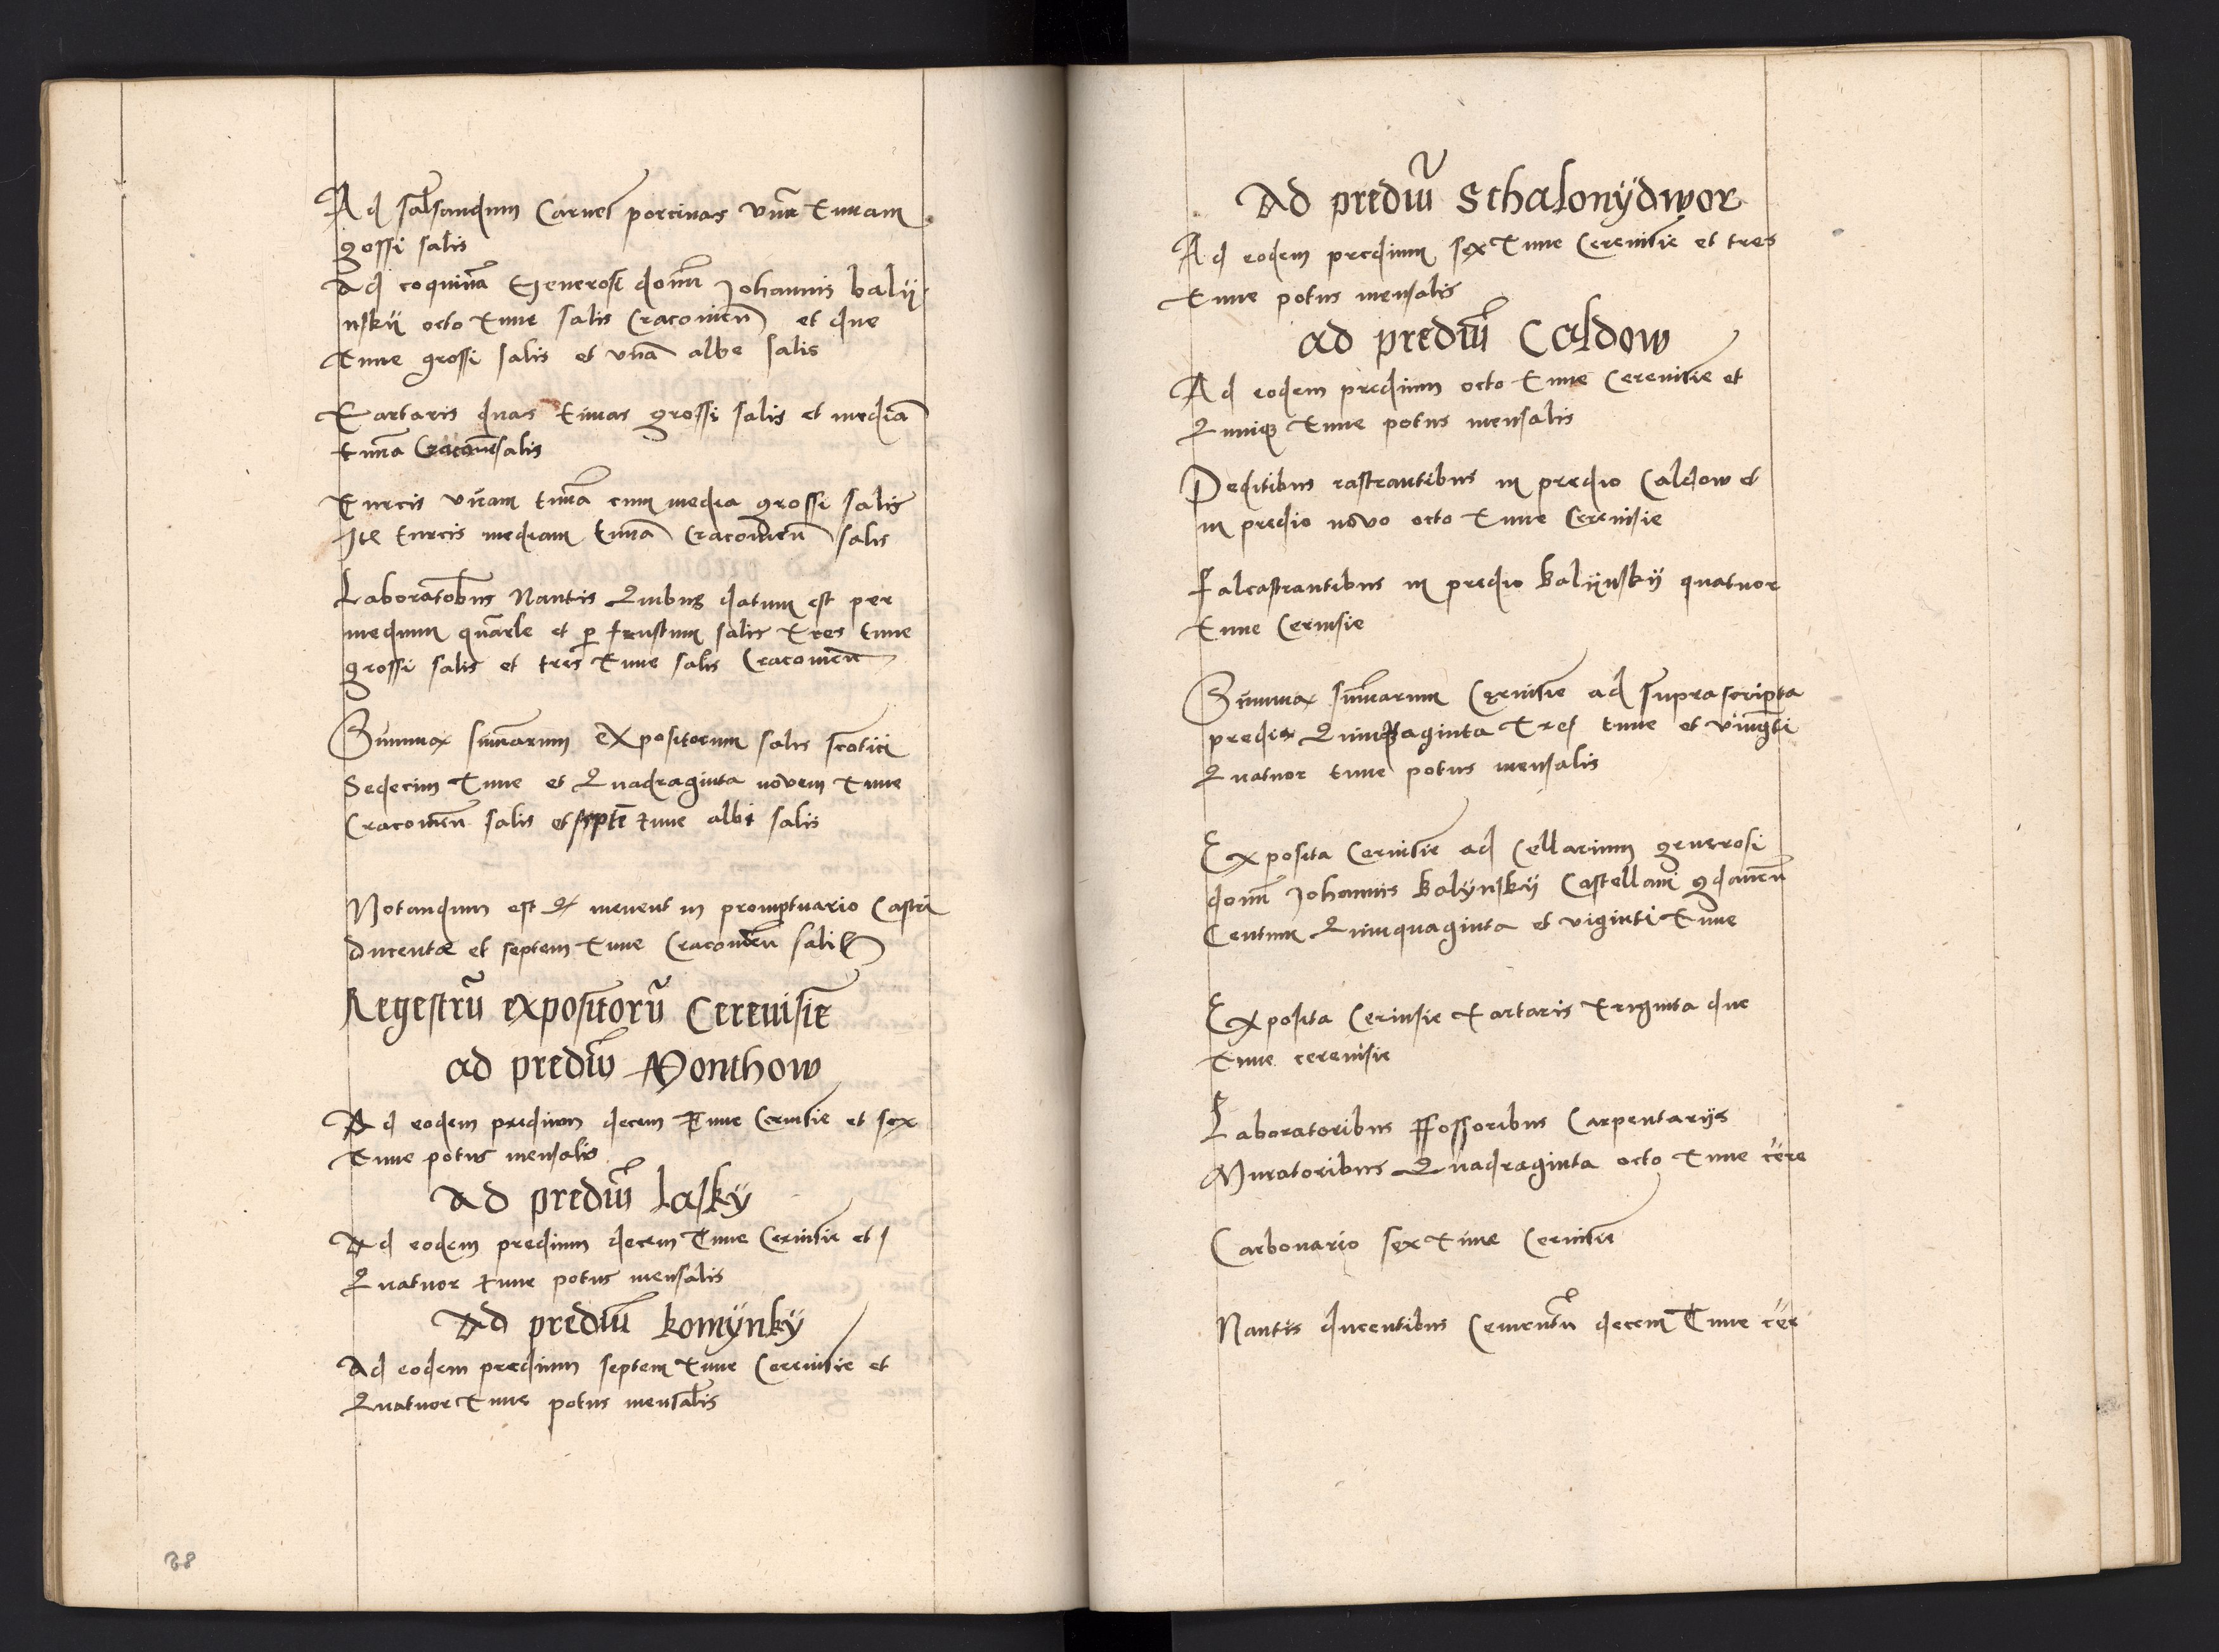 Ad salsandum Carnes porcinas vnā tunnam
grossi salis
Ad coquinā Generosi domī Johannis balÿ
nskÿ octo tune salis Cracouieñ et due
tune grossi salis et vnā albe salis
Tartaris duas tunas grossi salis et mediā
tunā Cracouieñ salis
Turcis vnam tunā cum media grossi salis
Itē turcis mediam tunā Cracouieñ salis
Laboratoribus Nautis Quibus datum est per
medium quarle et ꝑ frustum salis tres tune
grossi salis et tres tune salis Cracouieñ
Summa sumarum expositorum salis scotici
Sedecim tune et Quadraginta novem tune
Cracouieñ salis et septē tune albi salis
Notandum est ꝙ menent in promptuario Castri
ducentae et septem tune Cracouieñ salis
Regestrū expositorū Cereuisie
ad prediū Monthow
Ad eodem predium decem tune Ceruisie et sex
tune potus mensalis
Ad prediū laskÿ
Ad eodem predium decem tune Ceruisie et
Quatuor tune potus mensalis
Ad prediū komÿnkÿ
Ad eodem predium septem tune Cereuisie et
Quatuor tune potus mensalis
38
Ad prediū Sthalonÿdwor
Ad eodem predium sex tune Cereuisie et tres
tune potus mensalis
ad prediū Caldow
Ad eodem predium octo tune Cereuisie et
Quinqꝫ tune potus mensalis
Peditibus rastrantibus in predio Caldow et
in predio novo octo tune Cereuisie
Falcastrantibus in predio balÿnskÿ quatuor
tune Ceruisie
Summa sumarum Ceruisie ad suprascripta
predia Quinquaginta tres tune et viingti
Quatuor tune potus mensalis
Exposita Ceruisie ad Cellarium generosi
domī Johannis balÿnskÿ Castellani gdaneñ
Centum Quinquaginta et viginti tune
Exposita Ceruisie tartaris triginta due
tune cereuisie
Laboratoribus ffossoribus Carpentarÿs
Muratoribus Quadraginta octo tune cere
Carbonario sex tune Ceruisie
Nautis ducentibus Cementū decem tune cer